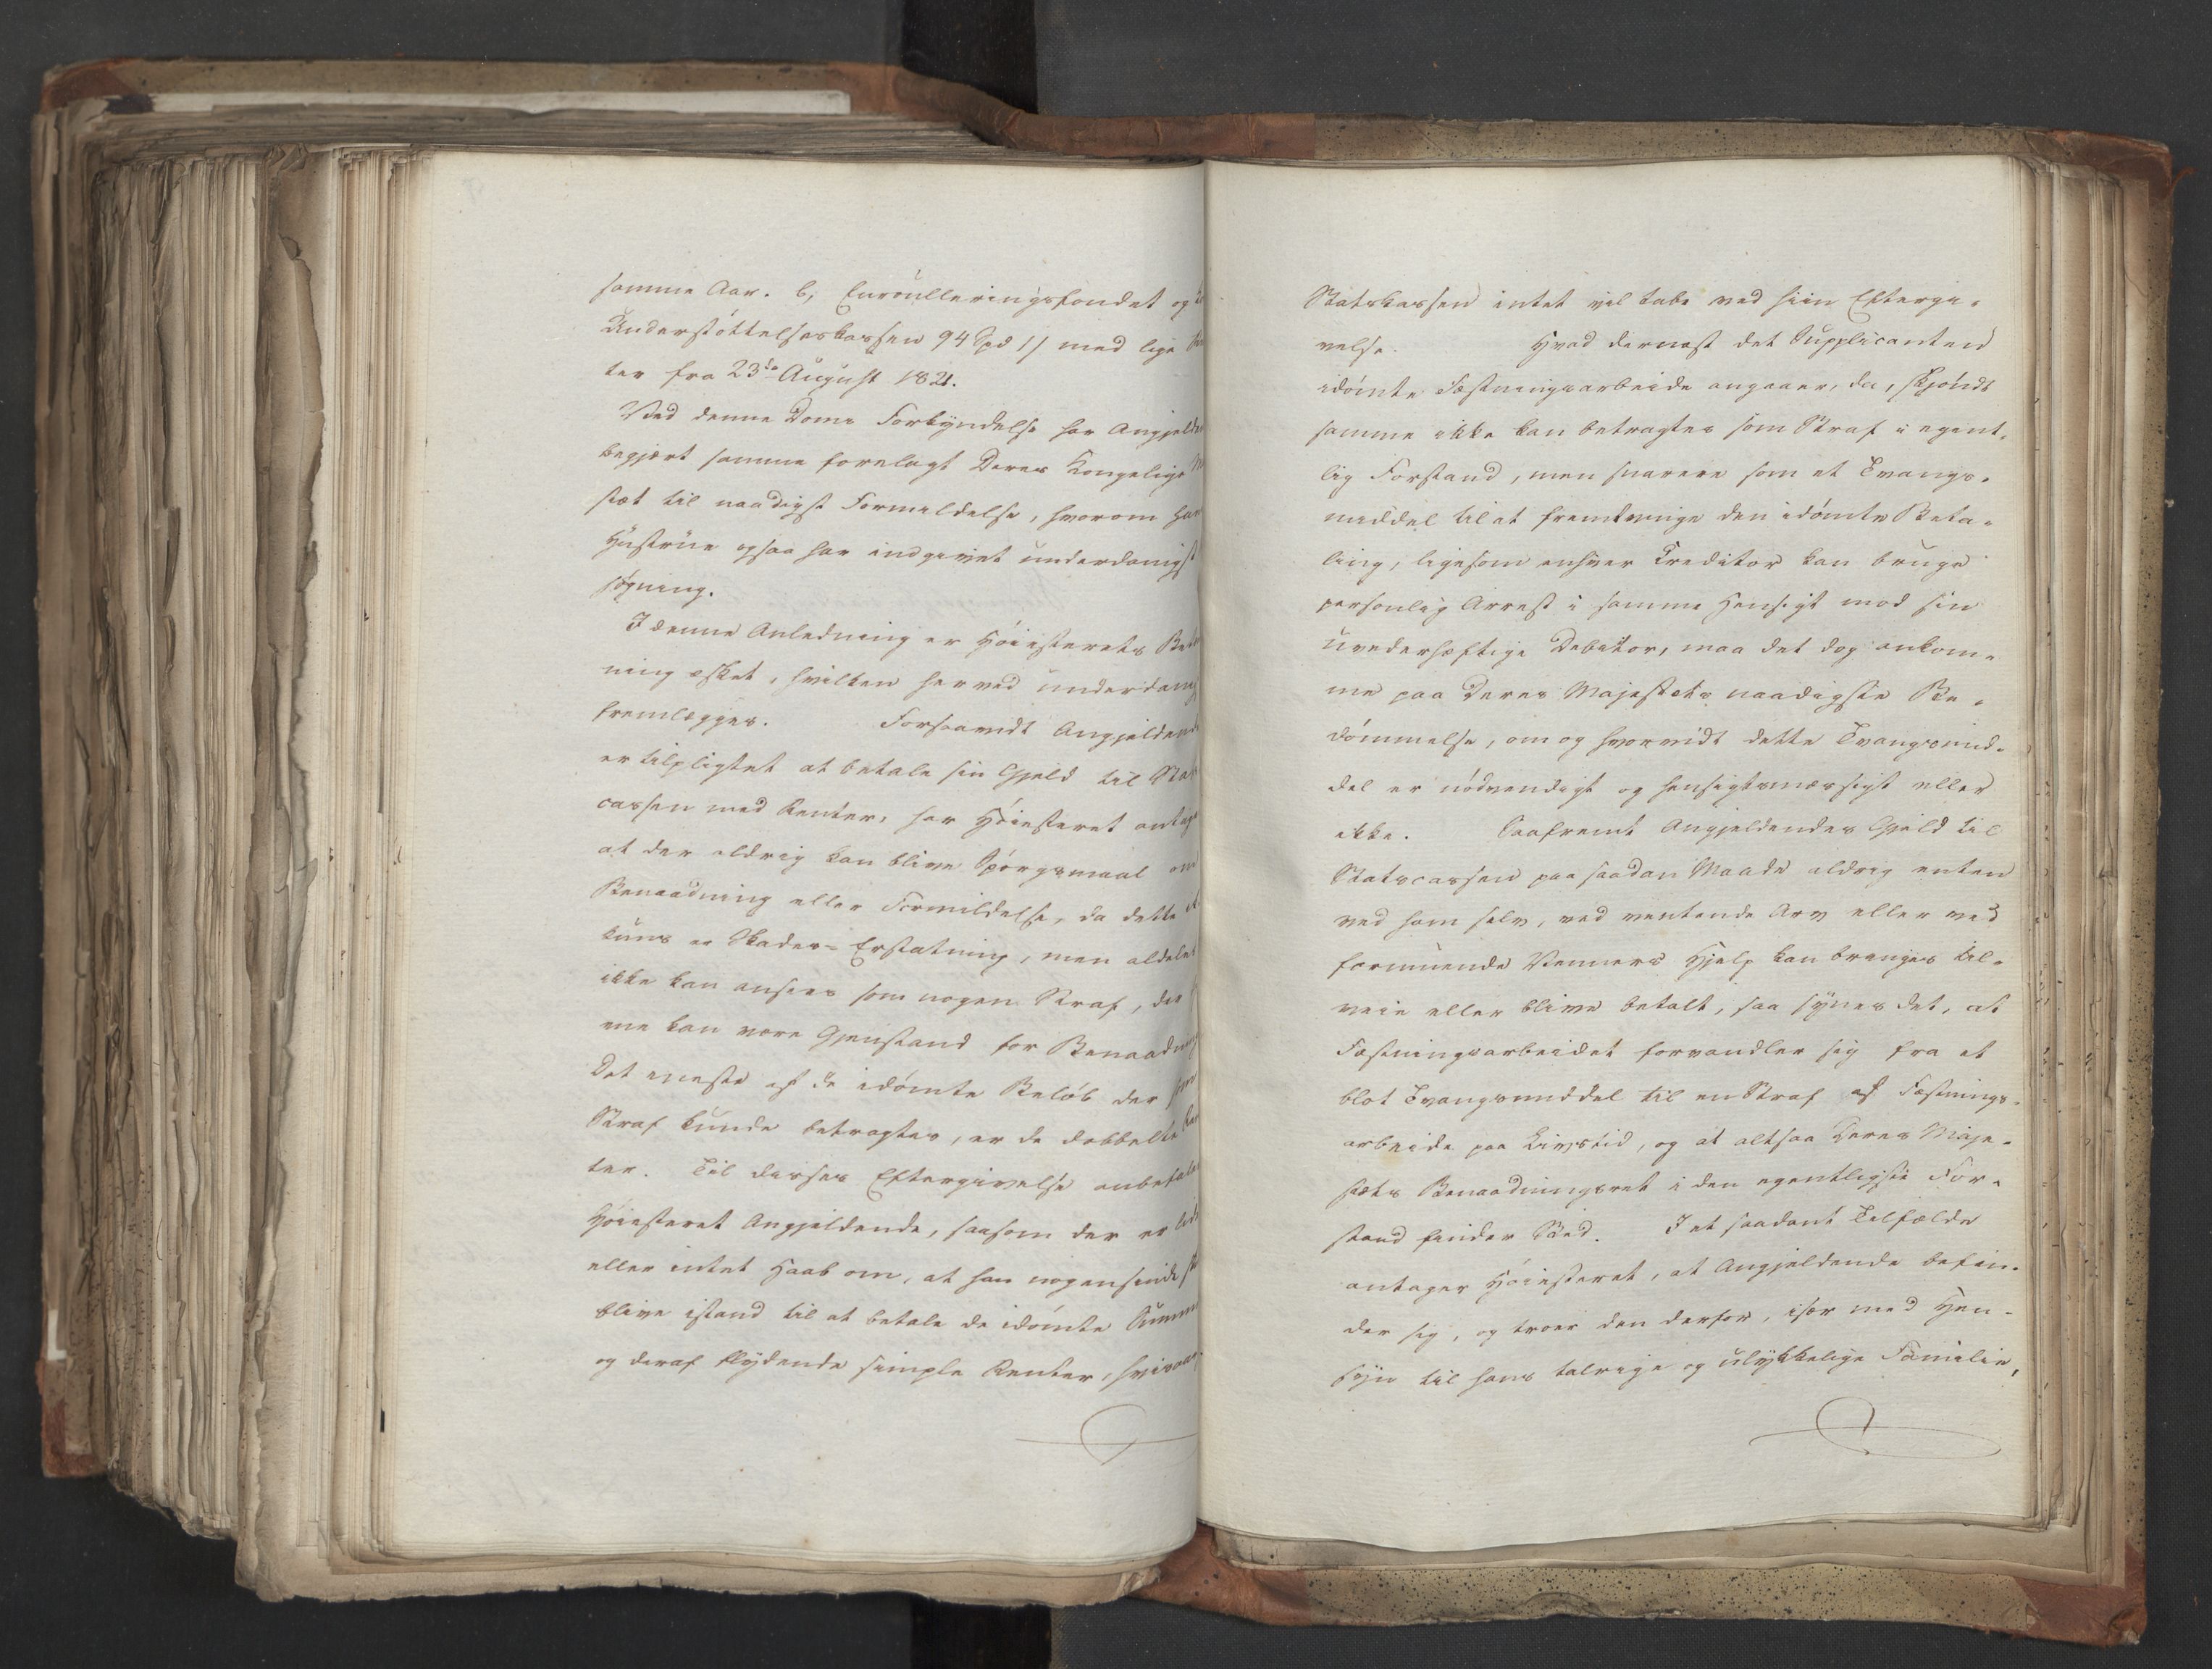 samme Aar. b, Enroulleringsfondet og
Understöttelseskassen 94 Spd // med lige
ter fra 23de August 1821.
Ved denne Doms Forkyndelse har Angjelde
begjært samme forelagt Deres Kongelige
stæt til naadigst Formildelse, hvorom han
Hustrue ogsaa har indgivet underdanigst
søgning.
I denne Anledning er Høiesterets
ning æsket, hvilken herved underdanig
fremlægges. Forsaavidt Angjeldende
er tilpligtet at betale sin Gjeld til Stats
cassen med Renter, har Høiesteret antag
at der aldrig kan blive Spörgsmaal om
Benaadning eller Formildelse, da dette
kuns er Skades-Erstatning, men aldeles
ikke kan ansees som nogen Straf, der
ene kan være Gjenstand for Benaadning
Det eneste af de idömte Belöb der som
Straf kunde betragtes, er de dobbelte
ter. Til disses Eftergivelse anbefaler
Høiesteret Angjeldende, saasom der er lidt
eller intet Haab om, at han nogensinde
blive istand til at betale de idömte Summe
og deraf flydende simple Renter, hvis
Statskassen intet vil tabe ved hiin Eftergi-
velse. Hvad dernæst det Supplicanten
idömte Fæstningsarbeide angaaer, da, skjöndt
samme ikke kan betragtes som Straf i egent-
lig Forstand, men snarere som et Tvangs-
middel til at fremtvinge den idömte Beta-
ling, ligesom enhver Creditor kan bruge
personlig Arrest i samme Hensigt mod sin
uvederhæftige Debitor, maa det dog ankom-
me paa Deres Majestæts naadigste Be-
dömmelse, om og hvorvidt dette Tvangsmid-
del er nödvendigt og hensigtsmæssigt eller
ikke. Saafremt Angjeldendes Gjeld til
Statscassen paa saadan Maade aldrig enten
ved ham selv, ved ventende Arv eller ved
formuende Venners Hjelp kan bringes til-
veie eller blive betalt, saa synes det, at
Fæstningsarbeidet forvandler sig fra et
blot Tvangsmiddel til en Straf af Fæstnings-
arbeide paa Livstid, og at altsaa Deres Maje-
stæts Benaadningsret i den egentligste For-
stand finder Sted. I et saadant Tilfælde
antager Høiesteret, at Angjeldende befin-
der sig, og troer den derfor, især med Hen-
syn til hans talrige og ulykkelige Familie,